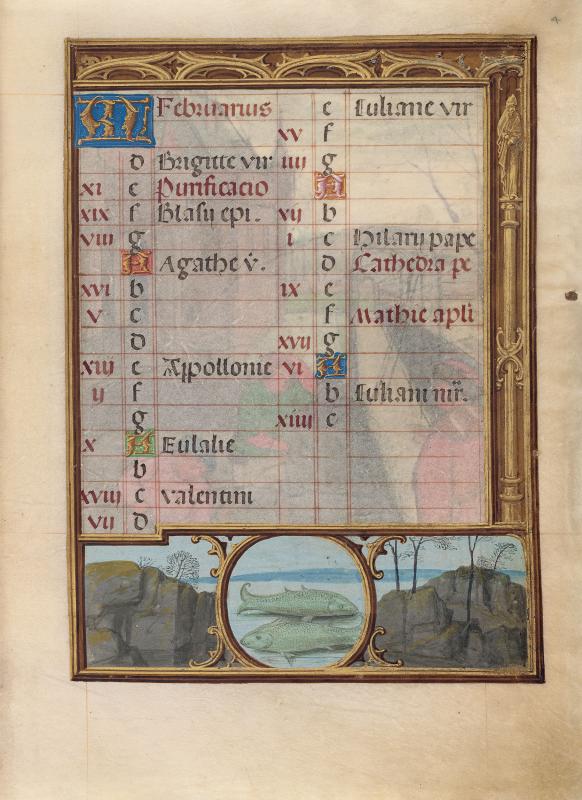 4
KL Februarius
d Brigitte vir
xi e Purificacio
xix f Blasij epi.
viij g
A Agathe v̇.
xvi b
v c
d
xiij e Appollonie
ij f
g
x A Eulalie
b
xviij c valentini
vij d
e Iuliane vir
xv f
iiij g
A
vij b
i c Hilarij pape
d Cathedra pe
ix e
f Mathie apli
xvij g
vi A
b Iuliani mr̄.
xiiij c